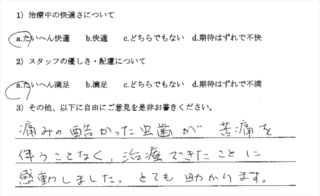 1）治療中の快適さについて
a.たいへん快適　b.快適　c.どちらでもない　d.期待はずれで不快
2）スタッフの優しさ・配慮について
a.たいへん満足　b.満足　c.どちらでもない　d.期待はずれで不満
3）その他、以下に自由にご意見を是非お書きください。
痛みの酷かった虫歯が苦痛を
伴うことなく、治療できたことに
感動しました。とても助かります。